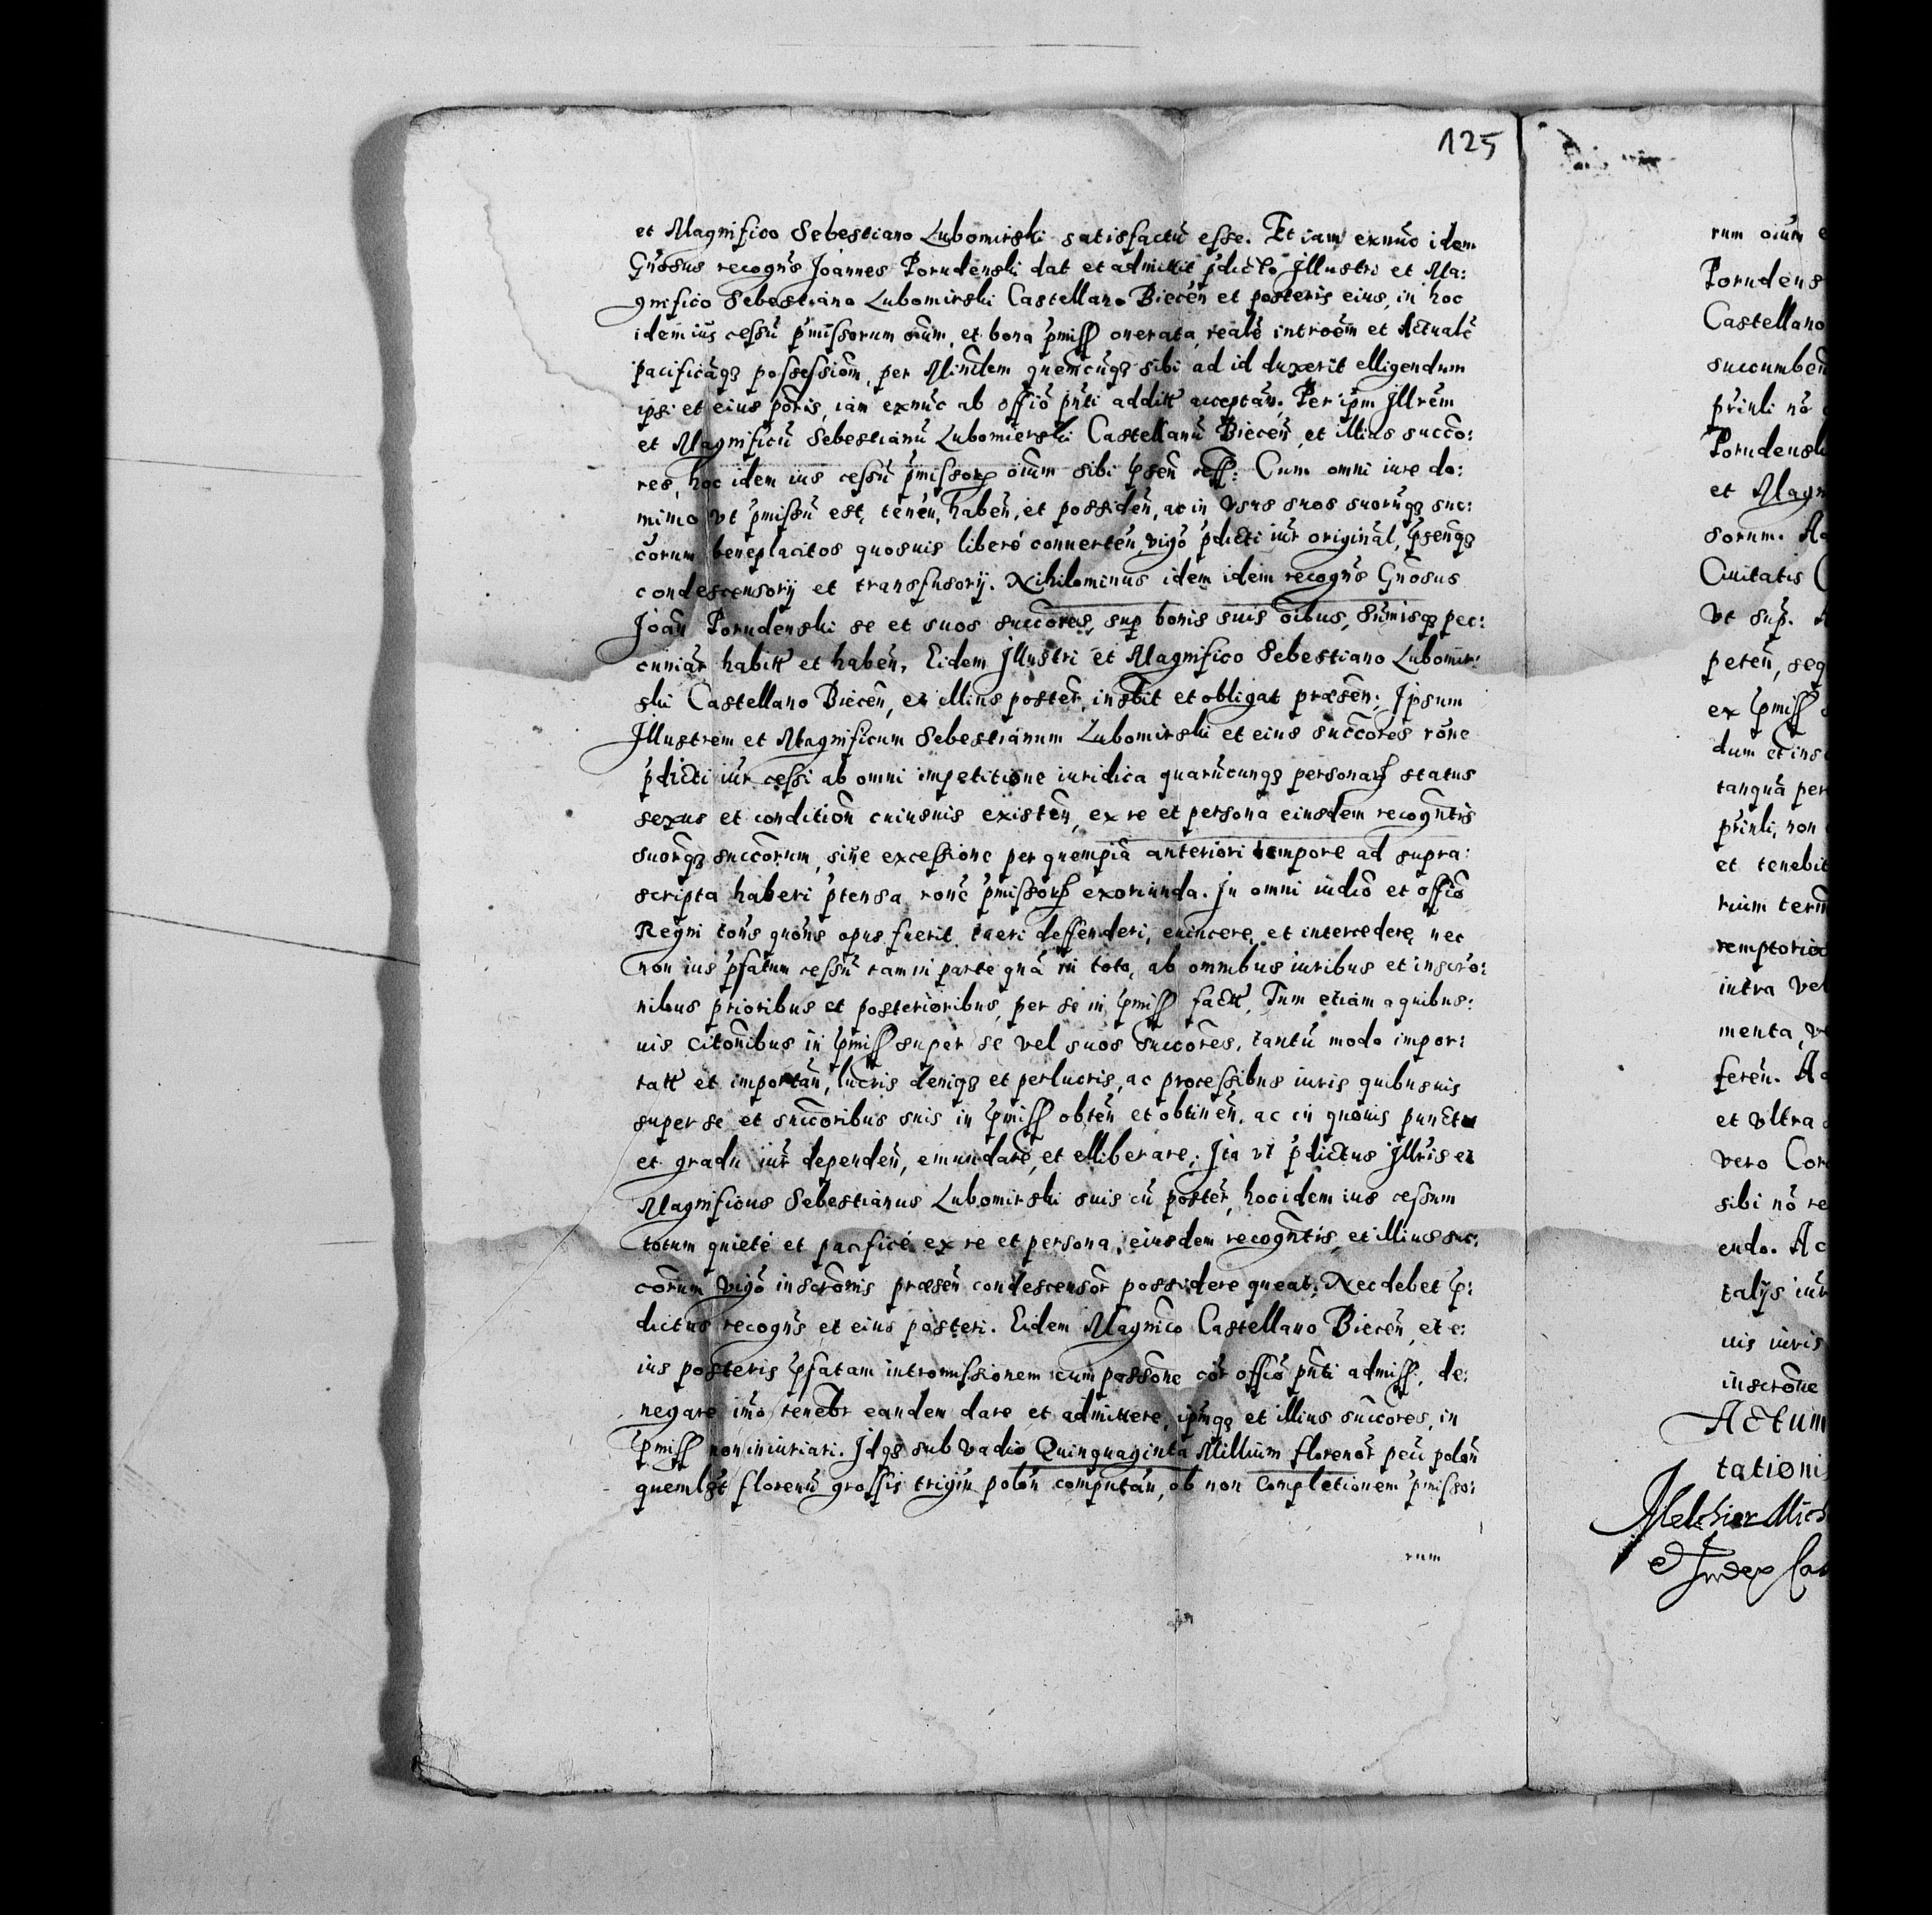 125
et Magnifico Sebestiano Lubomirski satisfactũ esse. Et iam exnũc idem
Gñosus recogñs Joannes Porudenski dat et admittit p̃dicto Illustri et Ma:
gnifico Sebestiano Lubomirski Castellano Bieceñ et posteris eius, in hoc
idem ius cessũ p̃missorum oĩum, et bona p̃miss onerata, realẽ introẽm et actualẽ
pacificãqʒ possessioñm, per Minñlem quemcũqʒ sibi ad id duxerit elligendum
ipsi et eius põris, iam exnũc ab offĩo pñti additt acceptañ. Per ipm̃ Illrẽm
et Magnificũ Sebestianũ Lubomierski Castellanũ Bieceñ, et illius succo:
res, hoc idem ius cessũ p̃missorꝫ oĩum sibi p̃señ ress: Cum omni iure do:
minio vt p̃missũ est, teneñ, habeñ, et possideñ, ac in Vsus suos suorũqʒ suc:
corum beneplacitos quosuis liberé conuerteñ, vigõ p̃dicti iur̃ original, p̃señqʒ
condescensorij et transfusorij. Nihilominus idem idem recogñs Gñosus
Joañ Porudenski se et suos succores, sup̃ bonis suis oĩbus, sum̃isqʒ pec:
cuniar̃ habitt et habeñ, Eidem Illustri et Magnifico Sebestiano Lubomir:
ski Castellano Bieceñ, et illius poster̃, inscbit et obligat præseñ; Ipsum
Illustrem et Magnificum Sebestianum Lubomirski et eius succores rõne
p̃dicti iur̃ cessi ab omni impetitione iuridica quarũcunqʒ personarꝫ status
sexus et conditioñ cuiusuis existeñ, ex re et persona eiusdem recogñtis
suorqʒ succorum, siue excessione per quempiã anteriori tempore ad supra:
scripta haberi p̃tensa ronẽ p̃missorꝫ exoriunda. In omni iudiõ et offiõ
Regni toñs quoñs opus fuerit, tueri deffenderi, euincere, et intercedere, nec
non ius p̃fatum cessũ tam in parte quã in toto, ab omnibus iuribus et inscro:
nibus prioribus et posterioribus, per se in p̃miss factt, Tum etiam a quibus:
uis citoñibus in p̃miss super se vel suos succores, tantũ modo impor:
tatt et importañ, lucris deniqʒ et perlucris, ac processibus iuris quibusuis
super se et succoribus suis in p̃miss obteñ et obtineñ, ac in quouis punctu
et gradu iur̃ dependeñ, emundare, et elliberare; Ita vt p̃dictus Illris et
Magnificus Sebestianus Lubomirski suis cũ poster̃, hoc idem ius cessum
totum quieté et pacificé ex re et persona, eiusdem recogñtis, et illius suc:
corum vigõ inscrõnis præseñ condescensor̃ possidere queat; Nec debet p̃:
dictus recogñs et eius posteri. Eidem Magnico Castellano Bieceñ, et e:
ius posteris p̃fatam intromissionem cum possone cor̃ offĩo pñti admiss, de:
negare imõ tenebr̃ eandem dare et admittere, ipm̃qʒ et illius succores, in
p̃miss non iniuriari. Idqʒ sub vadio Quinquaginta Millium florenor̃ pecũ poloñ
quemlibt florenũ grossis trigiñ poloñ computañ, ob non Completionem p̃misso:
rum
rum oĩum
Porudens
Castellano
succumbeñ
prinli nõ
Porudensk
et Magn
sorum. A
Ciuitatis
Vt sup̃.
peteñ, seq
ex p̃miss
dum et ins
tanquã per
prinli, non
et tenebit
rium term
remptorio
intra Vel
menta, v
fereñ. A
et vltra
vero Cor
sibi nõ re
endo. Ac
talijs iur
uis iuris
inscrõne
Actum
tationi
Melchior Mich
Judex Ca